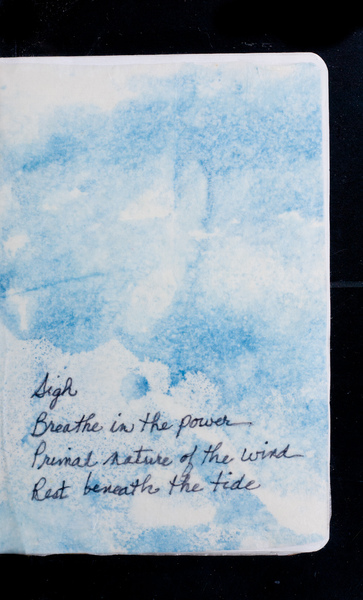 Sigh
Breathe in the power
Primal nature of the wind
Rest beneath the tide